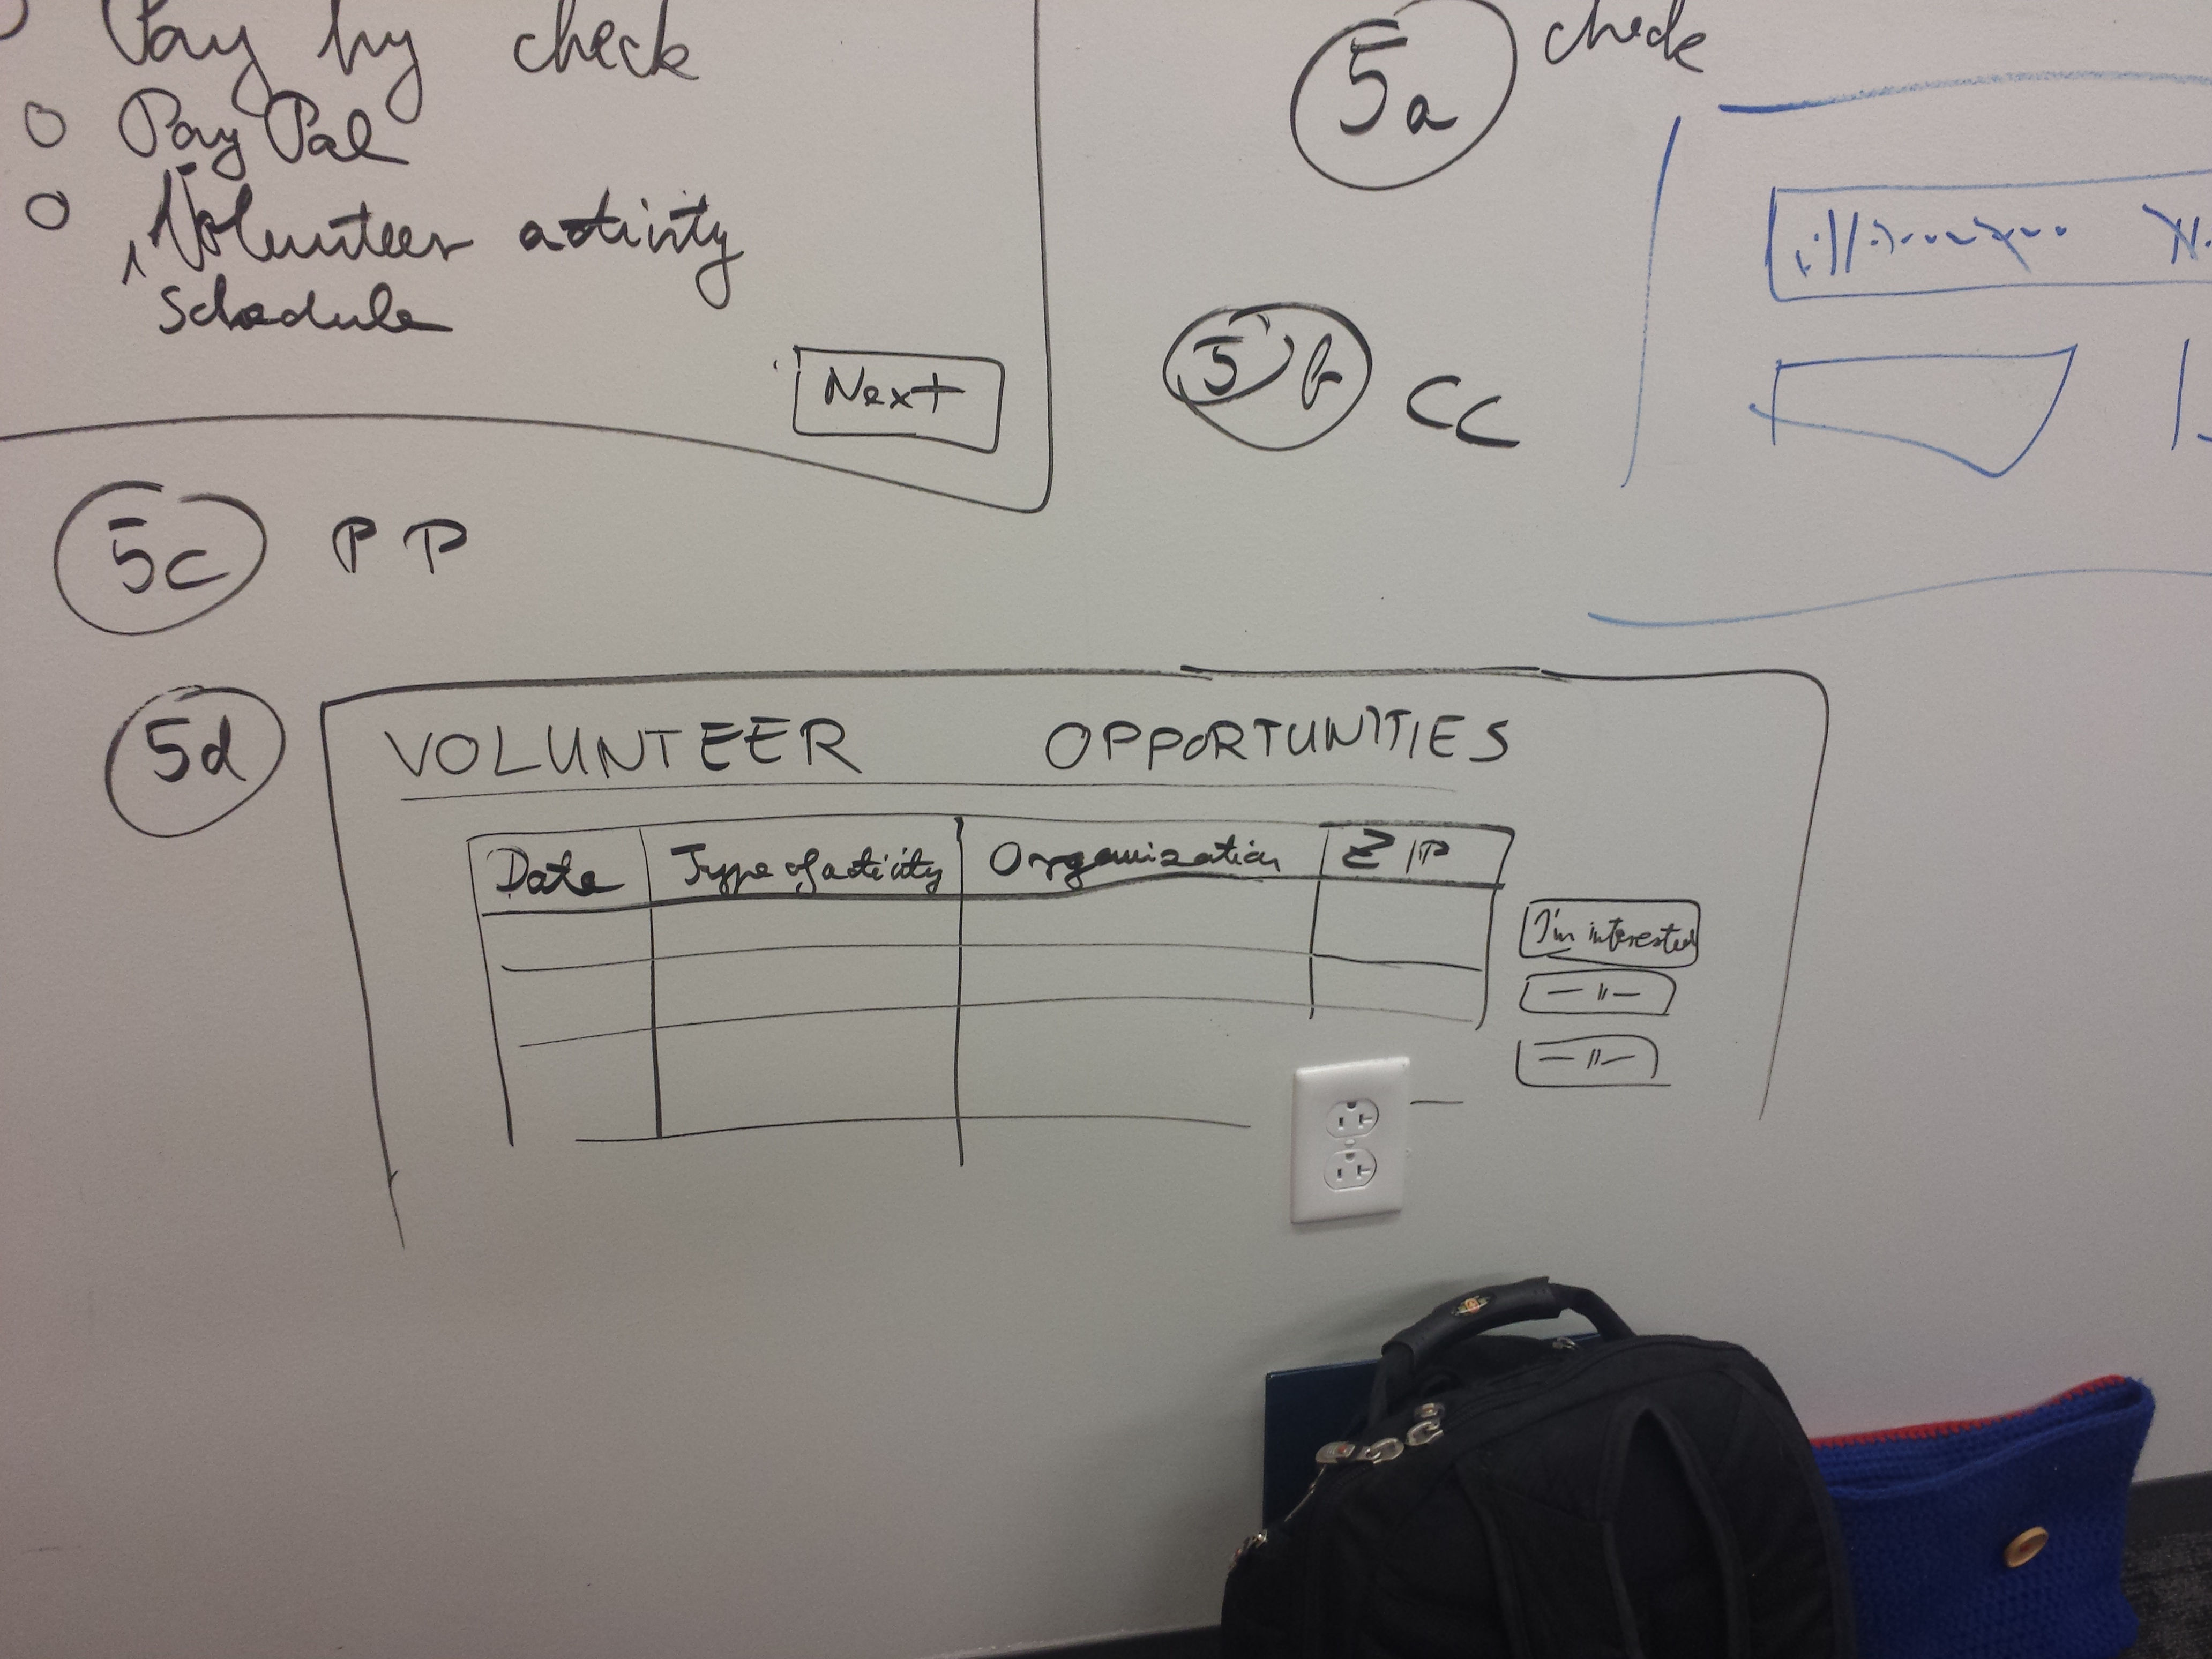 Pay by check
PayPal
Volunteer activity
schedule
Next
5a check
5b CC
5c PP
5d
VOLUNTEER OPPORTUNITIES
Date Type of activity Organization ZIP
I'm interested
— " —
— " —